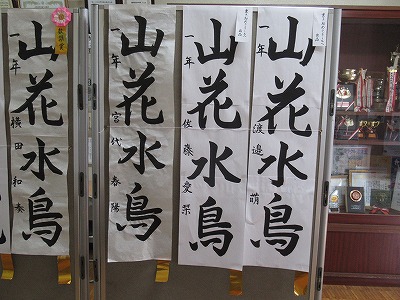 山花水鳥
一年 渡邉 萌
山花水鳥
一年 佐藤愛栞
山花水鳥
一年 宮代春陽
山花水鳥
一年 横田和奏